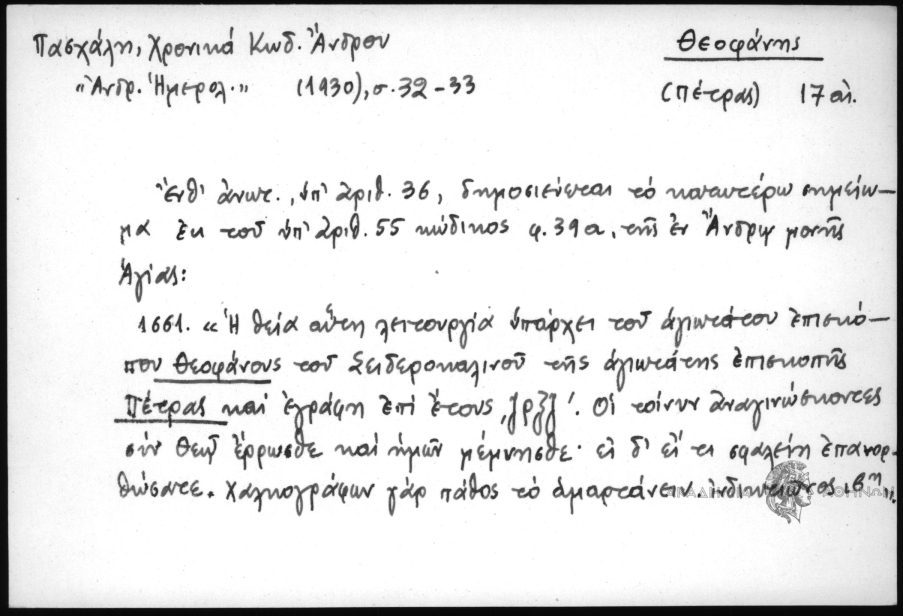 Πασχάλη, Χρονικά Κωδ. Ἄνδρου
Θεοφάνης
"Ἀνδρ. Ἡμερολ." (1930), σ. 32-33
(Πέτρας) 17 αἰ.
Ἐνθ' ἀνωτ., ὑπ' ἀριθ. 36, δημοσιεύεται τὸ κατωτέρω σημείω-
μα ἐκ τοῦ ὑπ' ἀριθ. 55 κώδικος φ. 39α, τῆς ἐν Ἄνδρῳ μονῆς
Ἁγίας:
1661. «Ἡ θεία αὕτη λειτουργία ὑπάρχει τοῦ ἁγιωτάτου ἐπισκό-
που Θεοφάνους τοῦ Ξειδεροκαλινοῦ τῆς ἁγιωτάτης ἐπισκοπῆς
Πέτρας καὶ ἐγράφη ἐπὶ ἔτους ͵ζρξζ'. Οἱ τοίνυν ἀναγινώσκοντες
σὺν Θεῷ ἔρρωσθε καὶ ἡμῶν μέμνησθε· εἰ δ' εἴ τι σφαλείη ἐπανορ-
θώσατε. Χαλκογράφων γὰρ πάθος τὸ ἁμαρτάνειν. ἰνδικτιῶνος ιβῃ».